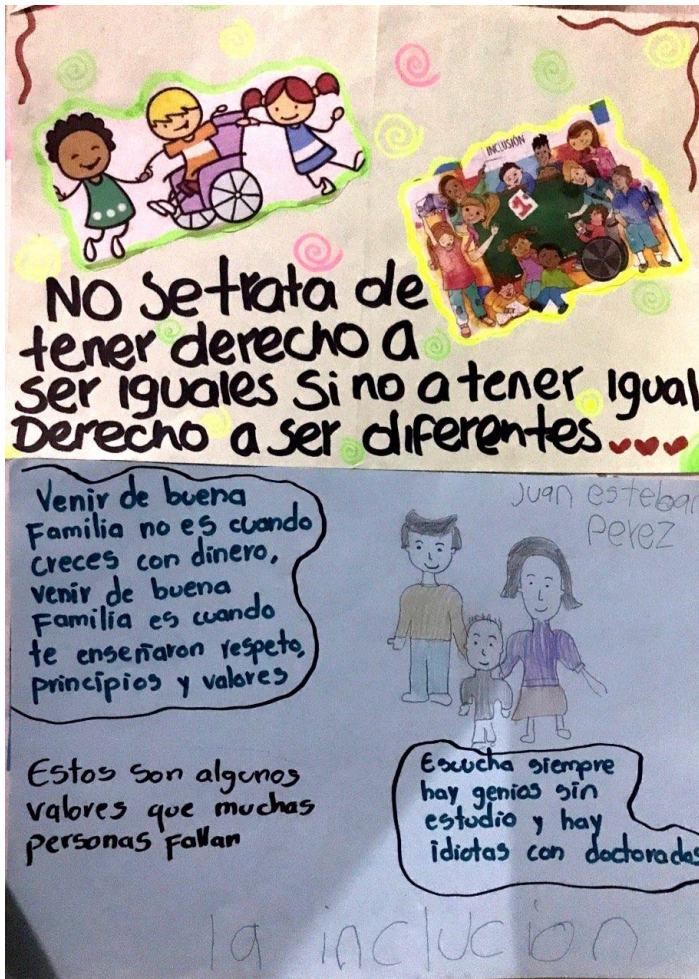 INCLUSIÓN
1°
NO Se trata de
tener derecho a
ser iguales Si no a tener igual
Derecho a ser diferentes...
Venir de buena
Familia no es cuando
creces con dinero,
venir de buena
Familia es cuando
te enseñaron respeto,
principios y valores
Juan esteban
Perez
Estos son algunos
valores que muchas
personas Fallan
Escucha siempre
hay genios sin
estudio y hay
idiotas con doctorados
la inclucion